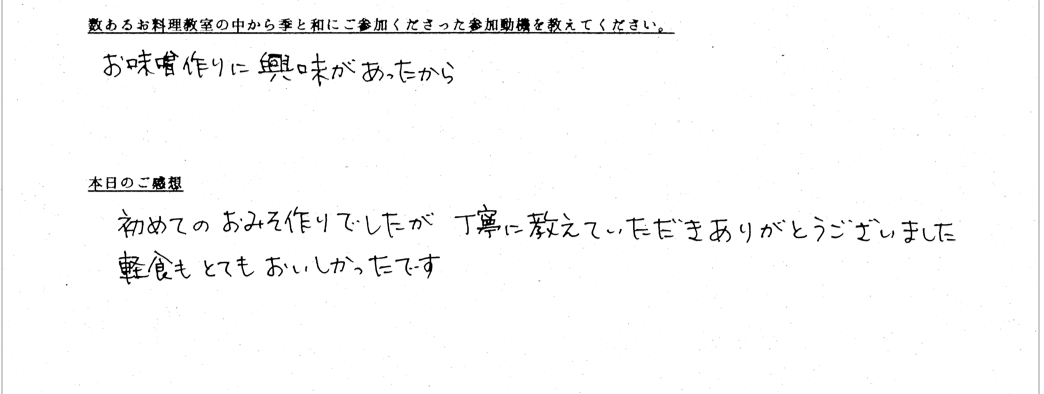 数あるお料理教室の中から季と和にご参加くださった参加動機を教えてください。
お味噌作りに興味があったから
本日のご感想
初めてのおみそ作りでしたが 丁寧に教えていただきありがとうございました
軽食もとてもおいしかったです